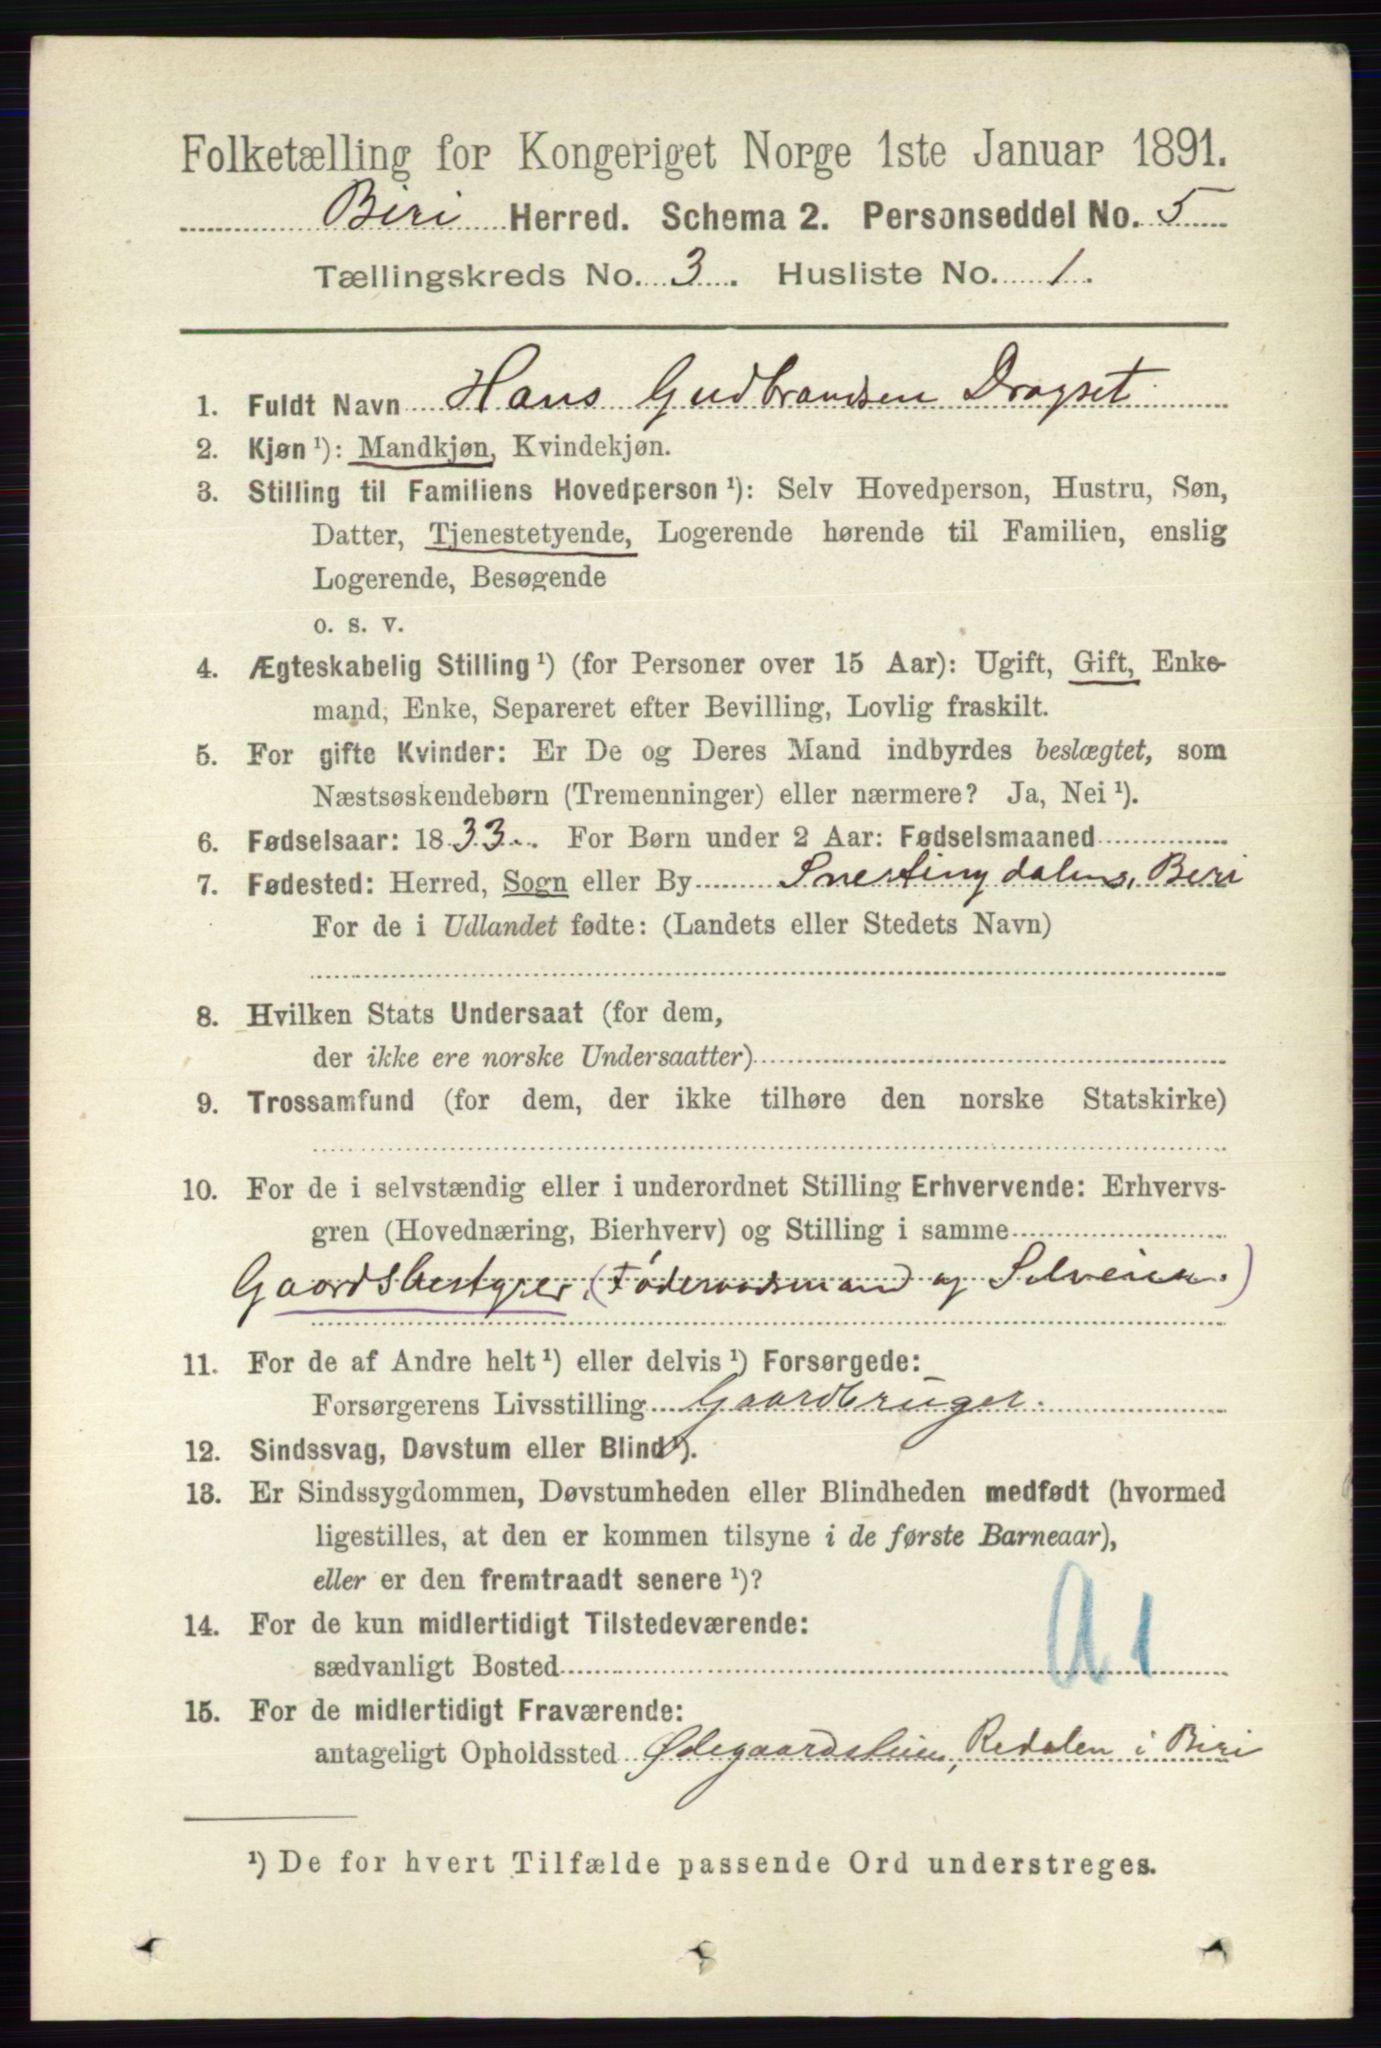 Folketælling for Kongeriget Norge 1ste Januar 1891.
Biri Herred. Schema 2. Personseddel No. 5
Tællingskreds No. 3. Husliste No. 1.
1. Fuldt Navn Hans Gudbrandsen Dragset
2. Kjøn ¹): Mandkjøn, Kvindekjøn.
3. Stilling til Familiens Hovedperson ¹): Selv Hovedperson, Hustru, Søn,
Datter, Tjenestetyende, Logerende hørende til Familien, enslig
Logerende, Besøgende
o. s. v.
4. Ægteskabelig Stilling ¹) (for Personer over 15 Aar): Ugift, Gift, Enke-
mand, Enke, Separeret efter Bevilling, Lovlig fraskilt.
5. For gifte Kvinder: Er De og Deres Mand indbyrdes beslægtet, som
Næstsøskendebørn (Tremenninger) eller nærmere? Ja, Nei ¹).
6. Fødselsaar: 1833. For Børn under 2 Aar: Fødselsmaaned
7. Fødested: Herred, Sogn eller By Snertingdalens, Biri
For de i Udlandet fødte: (Landets eller Stedets Navn)
8. Hvilken Stats Undersaat (for dem,
der ikke ere norske Undersaatter)
9. Trossamfund (for dem, der ikke tilhøre den norske Statskirke)
10. For de i selvstændig eller i underordnet Stilling Erhvervende: Erhvervs-
gren (Hovednæring, Bierhverv) og Stilling i samme
Gaardsbestyrer, (Føderaadsmand og Selveier.)
11. For de af Andre helt ¹) eller delvis ¹) Forsørgede:
Forsørgerens Livsstilling Gaardbruger.
12. Sindssvag, Døvstum eller Blind ¹).
13. Er Sindssygdommen, Døvstumheden eller Blindheden medfødt (hvormed
ligestilles, at den er kommen tilsyne i de første Barneaar),
eller er den fremtraadt senere ¹)?
14. For de kun midlertidigt Tilstedeværende:
sædvanligt Bosted
A1
15. For de midlertidigt Fraværende:
antageligt Opholdssted Ødegaardsteien, Redalen i Biri
¹) De for hvert Tilfælde passende Ord understreges.